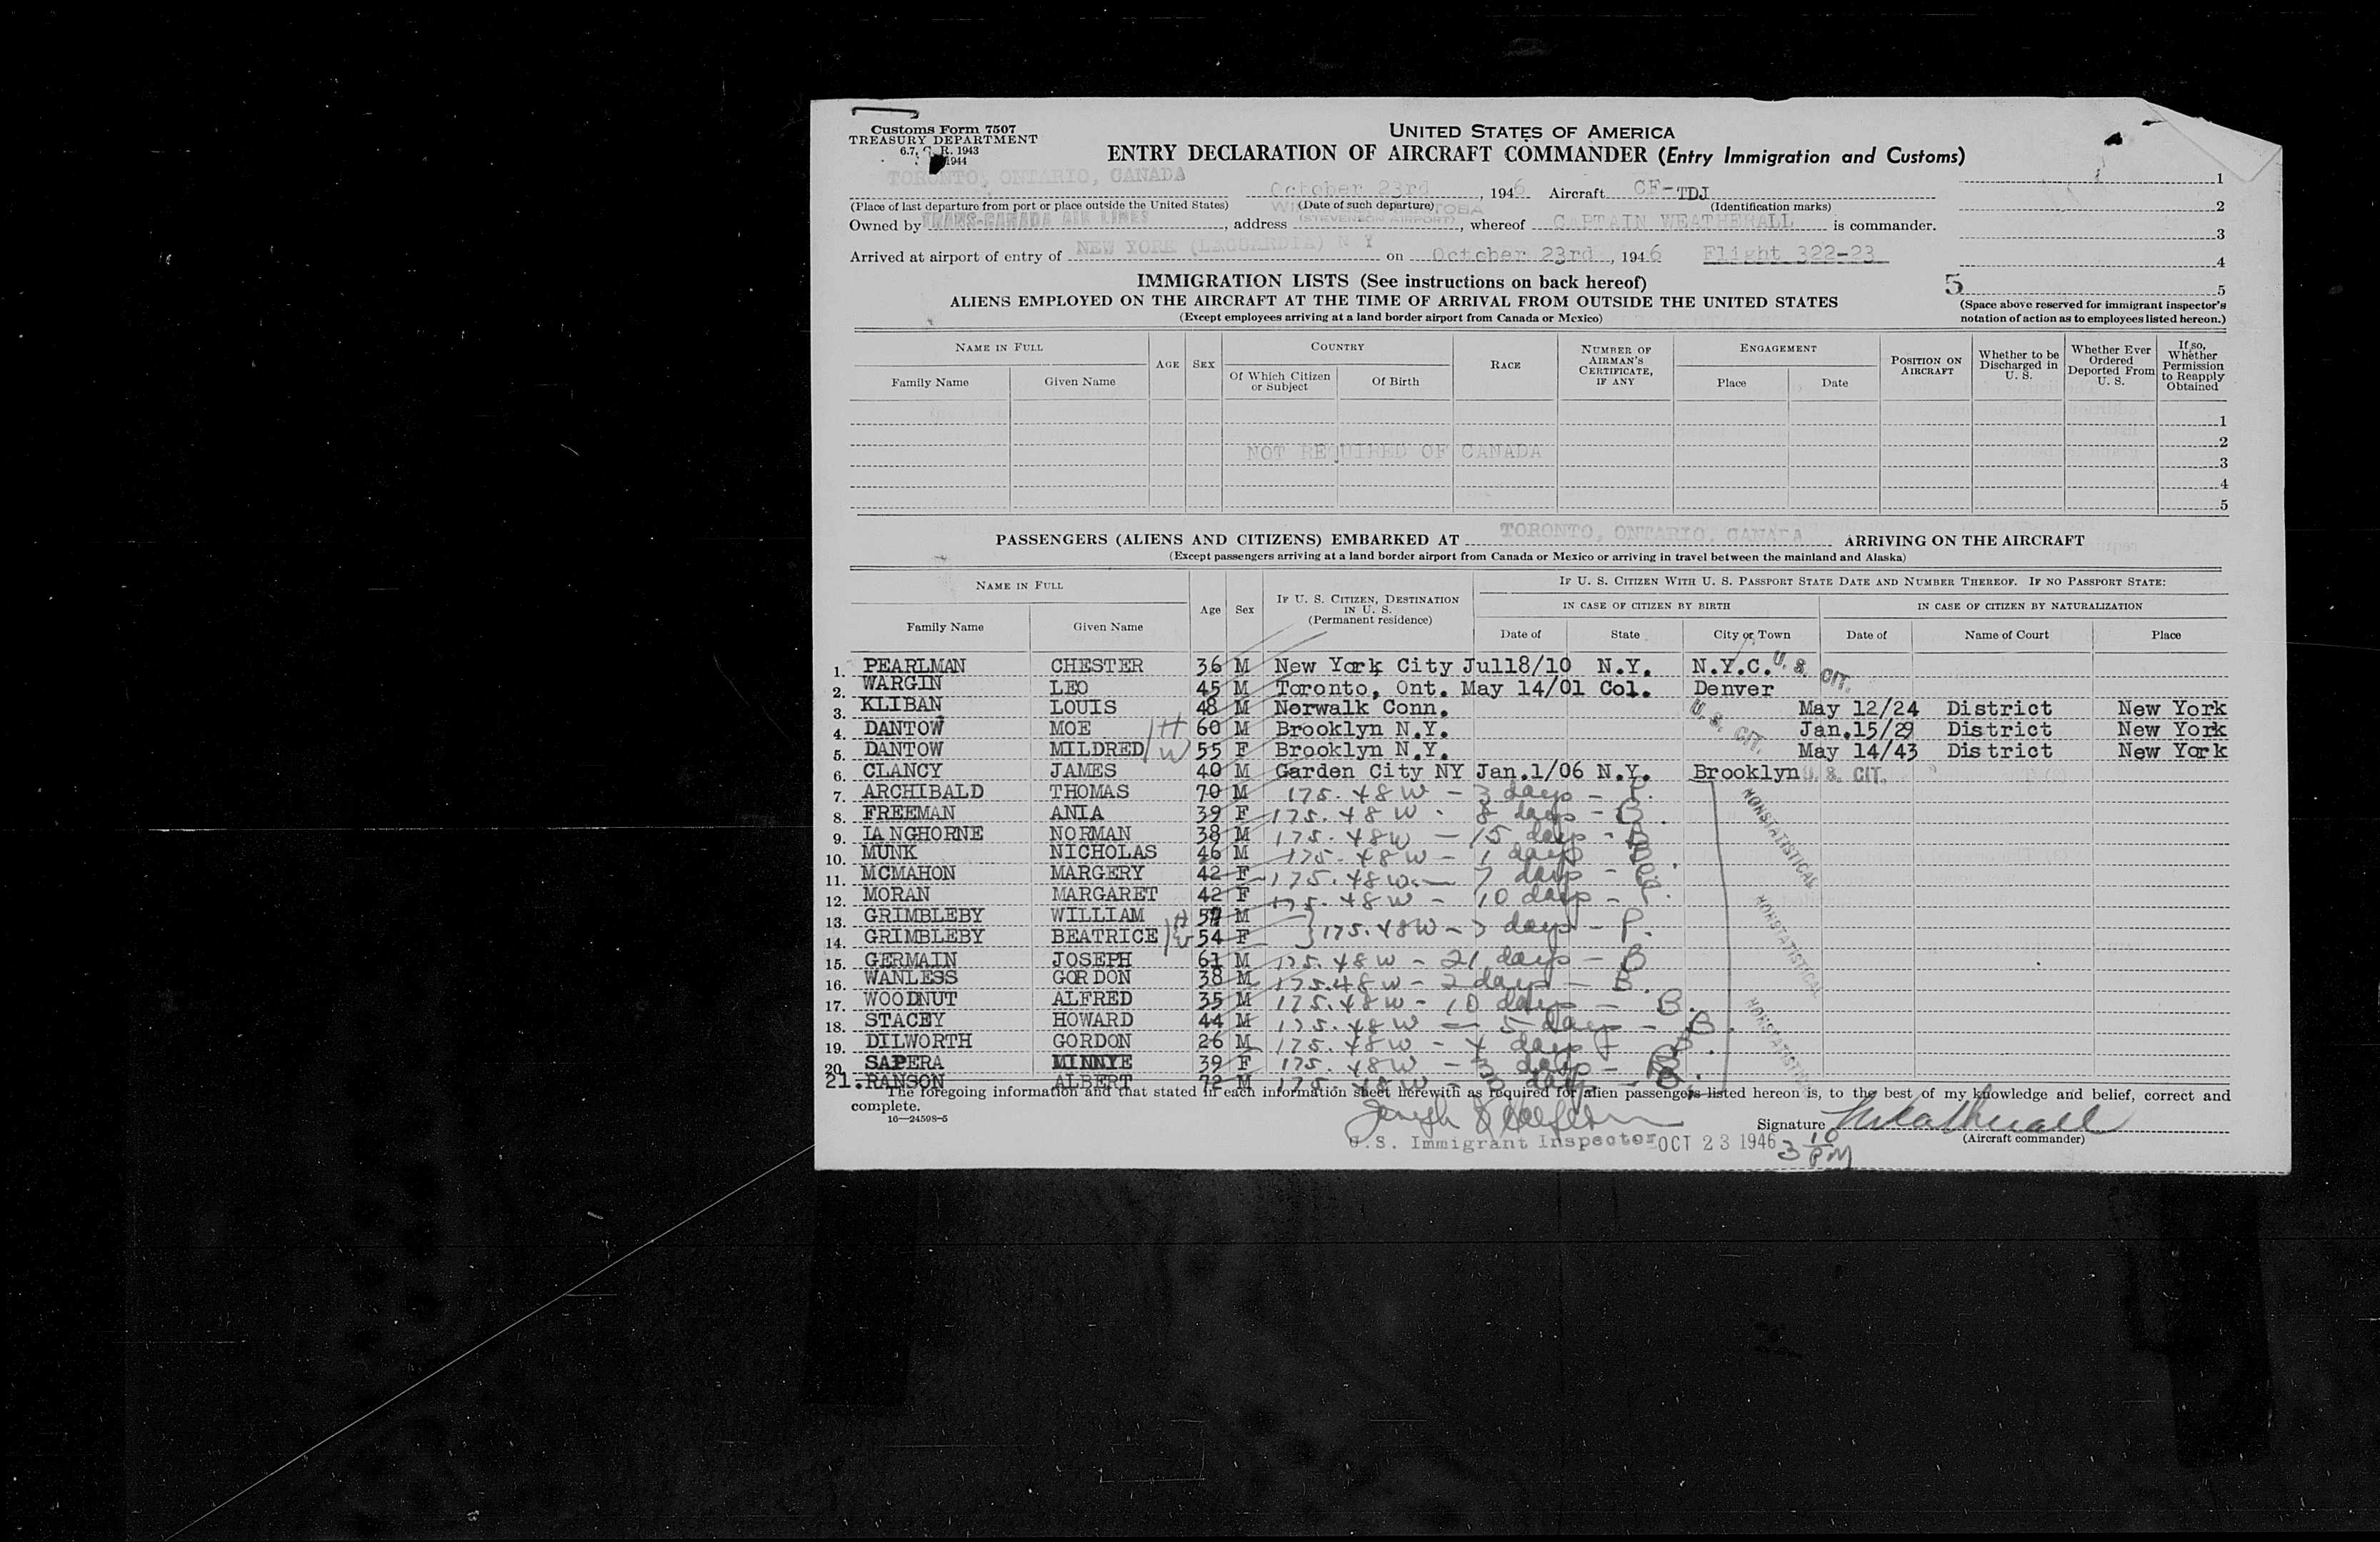 Customs Form 7507
TREASURY DEPARTMENT
1944
UNITED STATES OF AMERICA
ENTRY DECLARATION OF AIRCRAFT COMMANDER (Entry Immigration and Customs)
TORONTO, ONTARIO, CANADA October 23rd, 1946 Aircraft CF-TDJ
(Place of last departure from port or place outside the United States) (Date of such departure) (Identification marks)
Owned by TRANS-CANADA AIR LINES, address (STEVENSON AIRPORT), whereof CAPTAIN WEATHERALL is commander.
Arrived at airport of entry of NEW YORK (LAGUARDIA) N Y on October 23rd, 1946 Flight 322-23
1
2
3
4
5 5
(Space above reserved for immigrant inspector's notation of action as to employees listed hereon.)
IMMIGRATION LISTS (See instructions on back hereof)
ALIENS EMPLOYED ON THE AIRCRAFT AT THE TIME OF ARRIVAL FROM OUTSIDE THE UNITED STATES
(Except employees arriving at a land border airport from Canada or Mexico)
NAME IN FULL AGE SEX COUNTRY RACE NUMBER OF AIRMAN'S CERTIFICATE, IF ANY ENGAGEMENT POSITION ON AIRCRAFT Whether to be Discharged in U. S. Whether Ever Ordered Deported From U. S. If so, Whether Permission to Reapply Obtained
Family Name Given Name Of Which Citizen or Subject Of Birth Place Date
1
2
NOT REQUIRED OF CANADA
3
4
5
PASSENGERS (ALIENS AND CITIZENS) EMBARKED AT TORONTO, ONTARIO, CANADA ARRIVING ON THE AIRCRAFT
(Except passengers arriving at a land border airport from Canada or Mexico or arriving in travel between the mainland and Alaska)
NAME IN FULL Age Sex IF U. S. CITIZEN, DESTINATION IN U. S. (Permanent residence) IF U. S. CITIZEN WITH U. S. PASSPORT STATE DATE AND NUMBER THEREOF. IF NO PASSPORT STATE:
IN CASE OF CITIZEN BY BIRTH IN CASE OF CITIZEN BY NATURALIZATION
Family Name Given Name Date of State City or Town Date of Name of Court Place
1. PEARLMAN CHESTER 36 M New York City Jul18/10 N.Y. N.Y.C. U. S. CIT.
2. WARGIN LEO 45 M Toronto, Ont. May 14/01 Col. Denver
3. KLIBAN LOUIS 48 M Norwalk Conn. May 12/24 District New York
4. DANTOW MOE H 60 M Brooklyn N.Y. U. S. CIT. Jan.15/29 District New York
5. DANTOW MILDRED W 55 F Brooklyn N.Y. May 14/43 District New York
6. CLANCY JAMES 40 M Garden City NY Jan.1/06 N.Y. Brooklyn U. S. CIT.
7. ARCHIBALD THOMAS 70 M 175.48W - 3 days - P.
8. FREEMAN ANIA 39 F 175.48W - 8 days - B.
9. LANGHORNE NORMAN 38 M 175.48W - 15 days - B
10. MUNK NICHOLAS 46 M 175.48W - 1 days B.
11. MCMAHON MARGERY 42 F 175.48W - 7 days -
12. MORAN MARGARET 42 F 175.48W - 10 days - P.
13. GRIMBLEBY WILLIAM H M
14. GRIMBLEBY BEATRICE W 54 F 175.48W - 7 days - P.
15. GERMAIN JOSEPH 61 M 175.48W - 21 days - B
16. WANLESS GORDON 38 M 175.48W - 2 days - B.
17. WOODNUT ALFRED 35 M 175.48W - 10 days - B.
18. STACEY HOWARD 44 M 175.48W - 5 days - B.
19. DILWORTH GORDON 26 M 175.48W - 4 days -
20. SAPERA MINNYE 39 F 175.48W - 3 days - B.
21. RANSON ALBERT 72 M 175.48W - days - B.
NONSTATISTICAL
NONSTATISTICAL
NONSTATISTICAL
The foregoing information and that stated in each information sheet herewith as required for alien passengers listed hereon is, to the best of my knowledge and belief, correct and complete.
16—24598-5
Signature Weatherall
(Aircraft commander)
U.S. Immigrant Inspector OCT 23 1946 3 10 PM